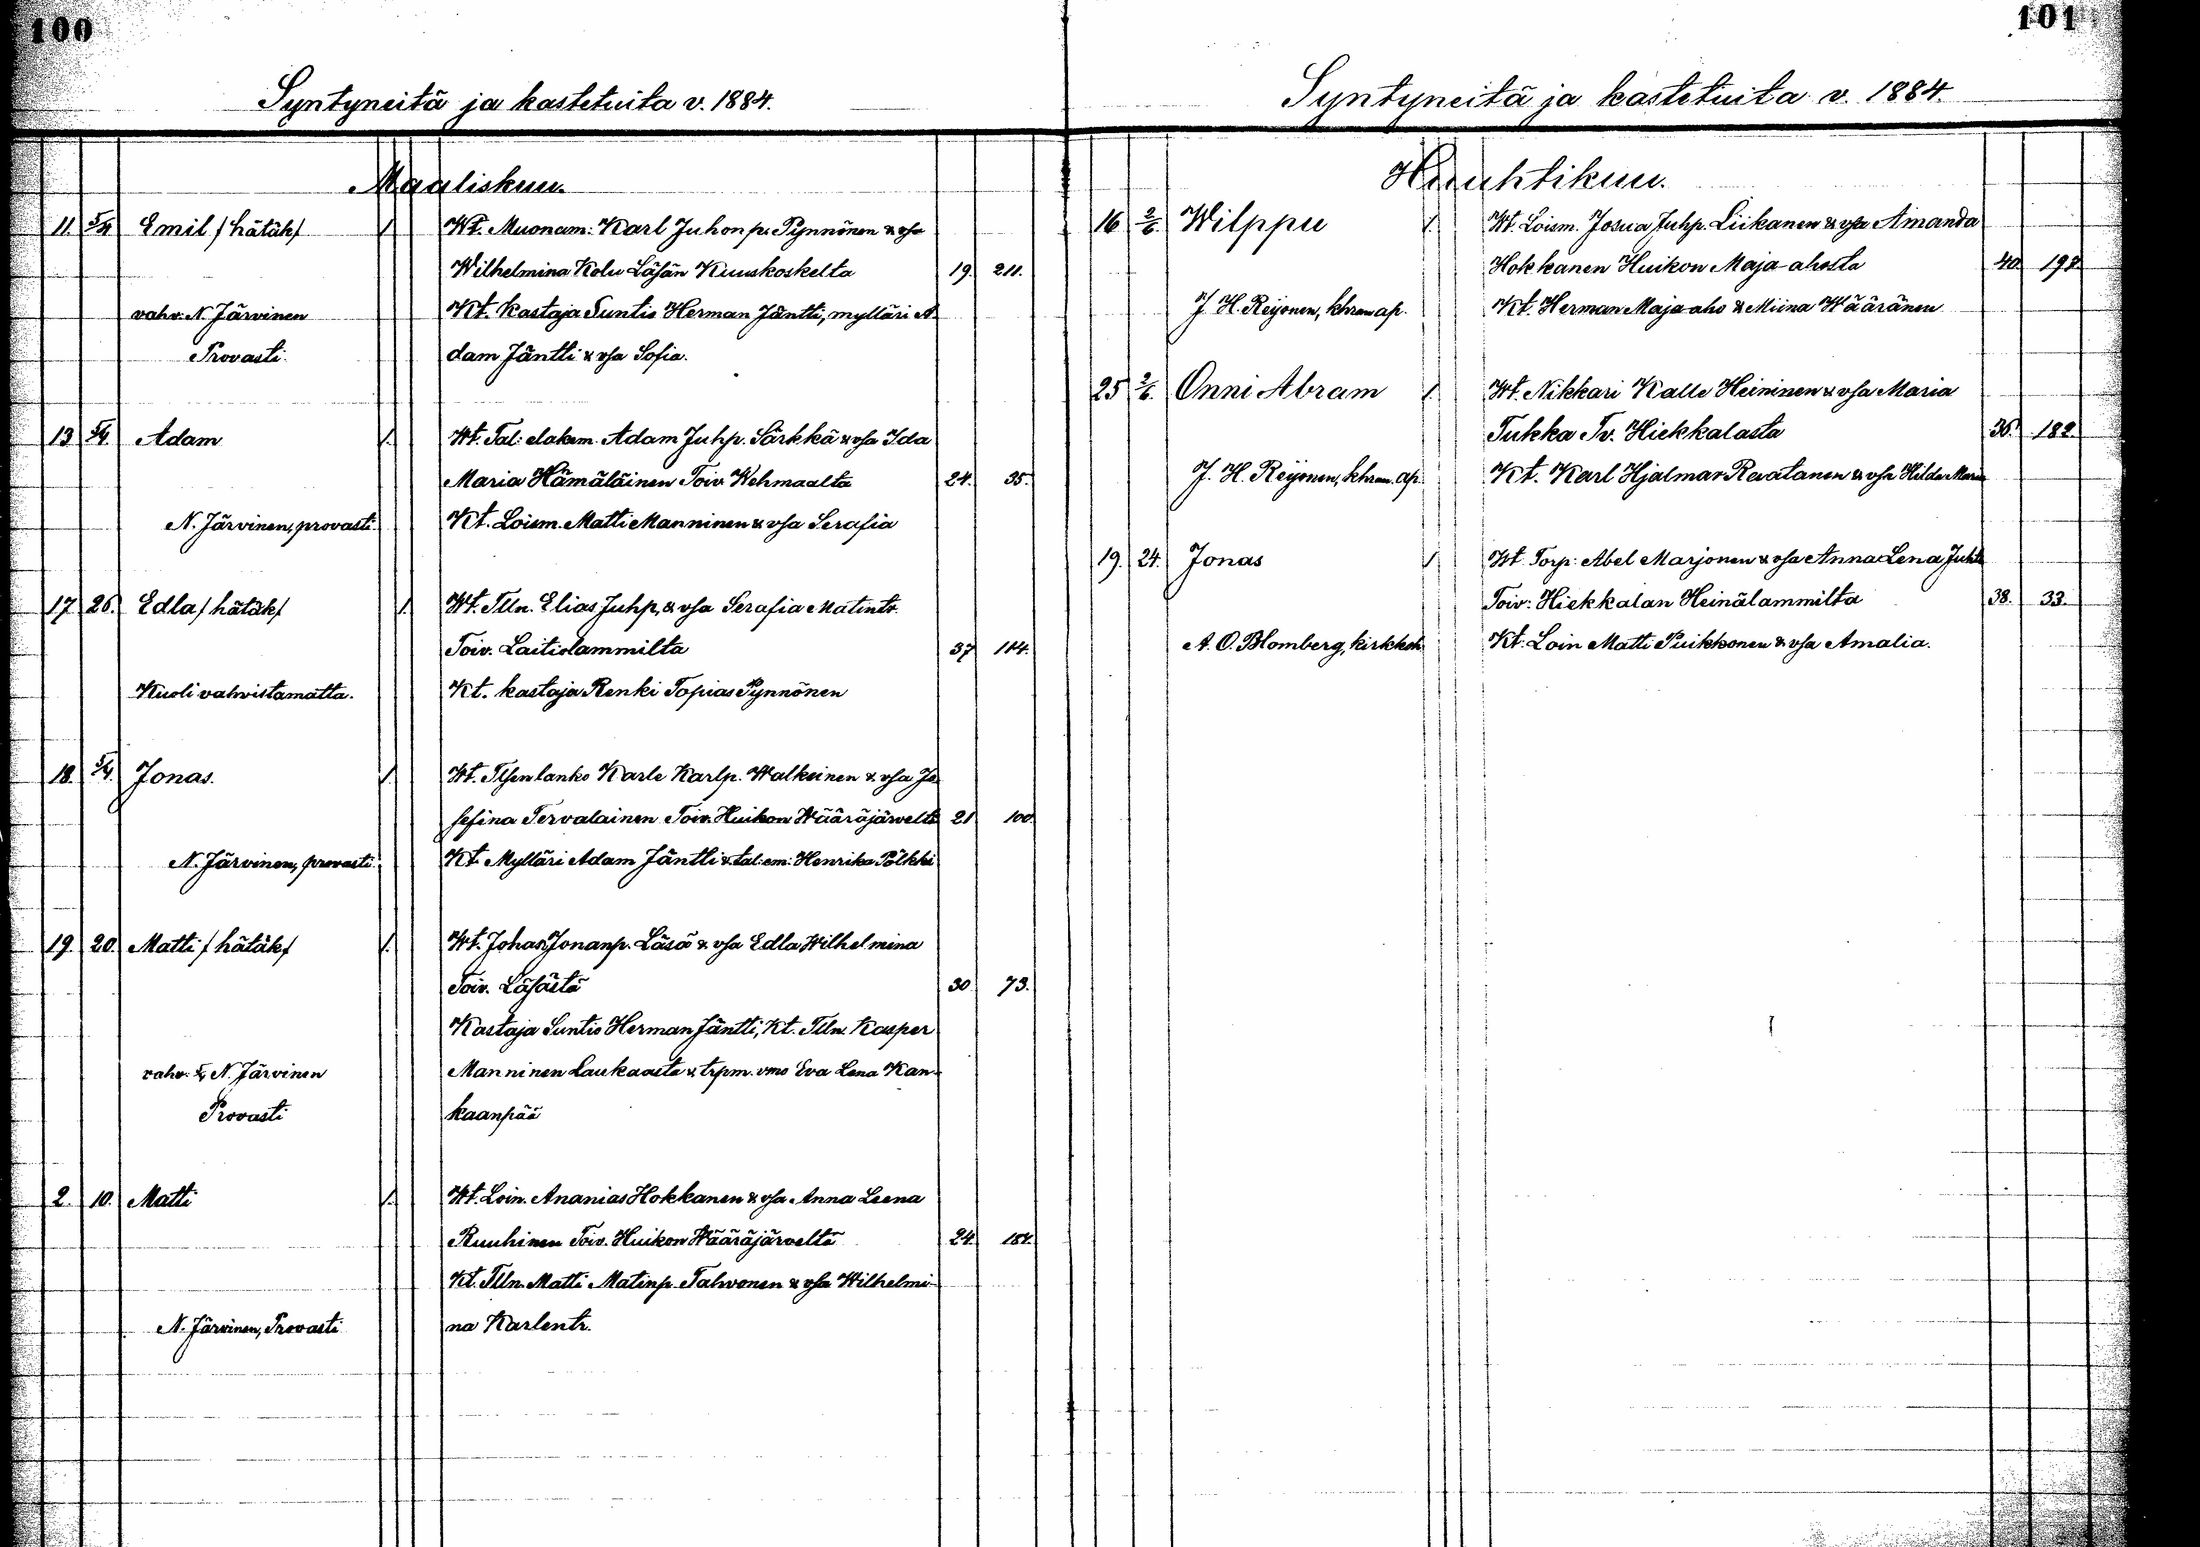 100
Syntyneitä ja kastetuita v. 1884.
Maaliskuu.
11. 5/4 Emil /hätäk/ 1. Wt. Muonam: Karl Juhonp. Pynnönen & vsa
Wilhelmina Kolu Läsän Kuuskoskelta 19. 211.
vahv. N. Järvinen Kt. kastaja Suntio Herman Jäntti, mylläri A
Provasti. dam Jäntti & vsa Sofia.
13 5/4. Adam 1. Wt. Tal: elakem. Adam Juhp. Särkkä & vsa Ida
Maria Hämäläinen Toiv. Wehmaalta 24. 35.
N. Järvinen, provasti. Kt. Loism. Matti Manninen & vsa Serafia
17. 26. Edla /hätäk/ 1. Wt. Tlln. Elias Juhp. & vsa Serafia Matintr.
Toiv. Laitiolammilta 37 114.
Kuoli vahvistamatta. Kt. kastaja Renki Topias Pynnönen
18. 5/4. Jonas. 1. Wt. Tlsenlanko Karle Karlp. Walkeinen & vsa Jo
sefina Tervalainen Toiv. Huikon Wääräjärvelta 21 100.
N. Järvinen, provasti. Kt. Mylläri Adam Jäntti & tal: em: Henrika Pölkki
19. 20. Matti /hätäk/ 1. Wt. Johan Jonanp. Läsä & vsa Edla Wilhelmina
Toiv. Läsästä 30 73.
Kastaja Suntio Herman Jäntti, Kt. Tlln. Kasper
vahv. N. Järvinen Manninen Laukaasta & trpm. vmo Eva Lena Kan-
Provasti kaanpää
2. 10. Matti 1. Wt. Loin. Ananias Hokkanen & vsa Anna Leena
Ruuhinen Toiv. Huikon Wääräjärveltä 24. 184.
Kt. Tlln. Matti Matinp. Tahvonen & vsa Wilhelmi-
N. Järvinen, Provasti na Karlentr.
101
Syntyneitä ja kastetuita v. 1884.
Huuhtikuu.
16 2/6. Wilppu 1. Wt. Loism. Josua Juhp. Liikanen & vsa Amanda
Hokkanen Huikon Maja-ahosta 40. 198.
J. H. Reijonen, khran ap. Kt. Herman Maja-aho & Miina Wääränen
25 2/6. Onni Abram 1. Wt. Nikkari Kalle Heininen & vsa Maria
Tukka Tv. Hiekkalasta 36. 182.
J. H. Reijonen, khran. ap. Kt. Karl Hjalmar Raatanen & vsa Hilda Maria
19. 24. Jonas 1 Wt. Torp: Abel Marjonen & vsa Anna Lena
Toiv: Hiekkalan Heinälammilta 38. 33.
A. O. Blomberg, kirkkoh. Kt: Loin Matti Puikkonen & vsa Amalia.